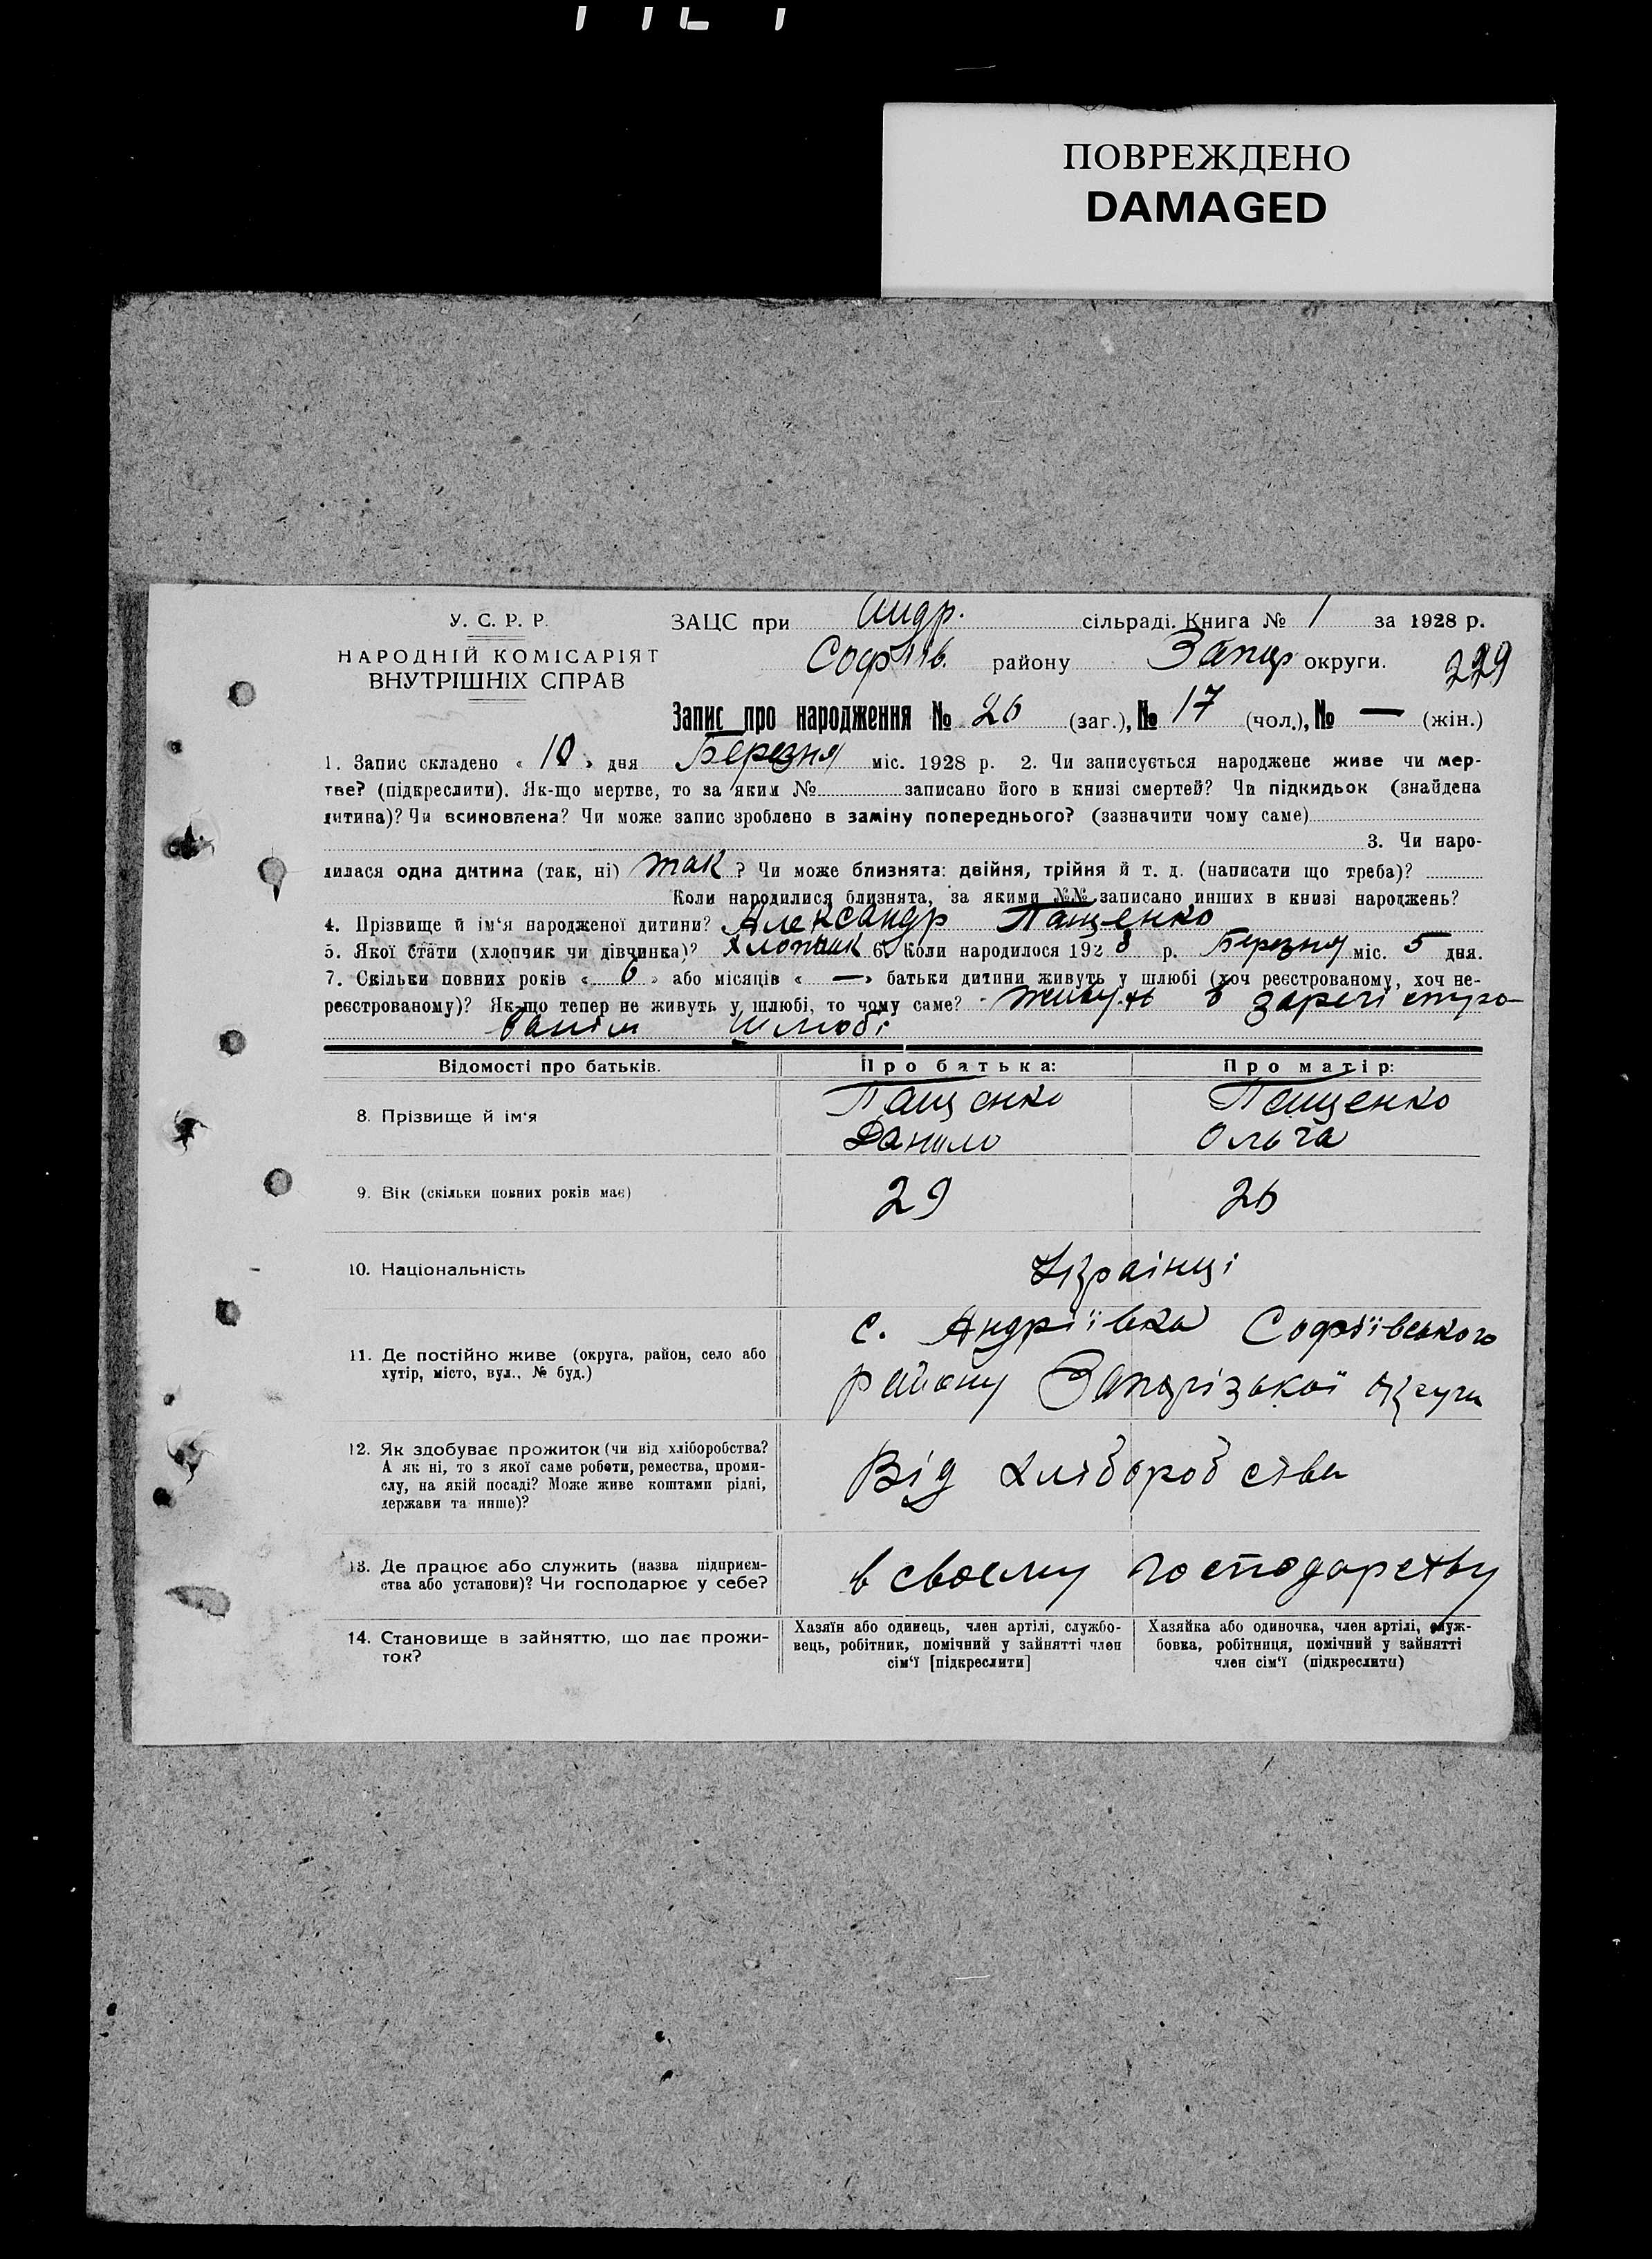 ПОВРЕЖДЕНО
DAMAGED
У. С. Р. Р.
НАРОДНІЙ КОМІСАРІЯТ
ВНУТРІШНІХ СПРАВ
ЗАЦС при Андр. сільраді. Книга № 1 за 1928 р.
Софіїв. району Запор округи.
229
Запис про народження № 26 (заг.), № 17 (чол.), № — (жін.)
1. Запис складено « 10 » дня Березня міс. 1928 р. 2. Чи записується народжене живе чи мер-
тве? (підкреслити). Як-що мертве, то за яким № записано його в книзі смертей? Чи підкидьок (знайдена
дитина)? Чи всиновлена? Чи може запис зроблено в заміну попереднього? (зазначити чому саме)
3. Чи наро-
дилася одна дитина (так, ні) так ? Чи може близнята: двійня, трійня й т. д. (написати що треба)?
Коли народилися близнята, за якими №№ записано инших в книзі народжень?
4. Прізвище й ім‘я народженої дитини? Александр Пащенко
5. Якої стати (хлопчик чи дівчинка)? Хлопчик 6. Коли народилося 1928 р. Березня міс. 5 дня.
7. Скільки повних років « 6 » або місяців « — » батьки дитини живуть у шлюбі (хоч реєстрованому, хоч не-
реєстрованому)? Як-що тепер не живуть у шлюбі, то чому саме? Живуть в заресі стро-
ванім шлюбі
Відомості про батьків. Про батька: Про матір:
8. Прізвище й ім‘я Пащенко Данило Пащенко Ольга
9. Вік (скільки повних років має) 29 26
10. Національність Українці
11. Де постійно живе (округа, район, село або
хутір, місто, вул., № буд.)
с. Андріївка Софіївського
району Запорізької округи
12. Як здобуває прожиток (чи від хліборобства?
А як ні, то з якої саме роботи, ремества, проми-
слу, на якій посаді? Може живе коштами рідні,
держави та инше)?
Від хліборобства
13. Де працює або служить (назва підприєм-
ства або установи)? Чи господарює у себе?
в своєму господарству
14. Становище в зайняттю, що дає прожи-
ток?
Хазяїн або одинець, член артілі, службо-
вець, робітник, помічний у зайнятті член
сім‘ї [підкреслити]
Хазяйка або одиночка, член артілі, служ-
бовка, робітниця, помічний у зайнятті
член сім‘ї (підкреслити)